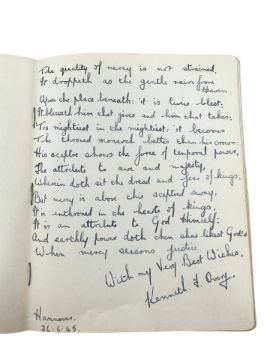 The quality of mercy is not strained.
It droppeth as the gentle rain from
Heaven.
Upon the place beneath: it is twice blest;
It blesseth him that gives and him that takes:
'Tis mightiest in the mightiest: it becomes
The throned monarch better than his crown:
His sceptre shows the force of temporal power,
The attribute to awe and majesty,
Wherein doth sit the dread and fear of kings.
But mercy is above this sceptred sway,
It is enthroned in the hearts of kings,
It is an attribute to God Himself:
And earthly power doth then show likest God's
When mercy seasons justice.
With my Very Best Wishes,
Kenneth J.
Hannover.
26-6-45.